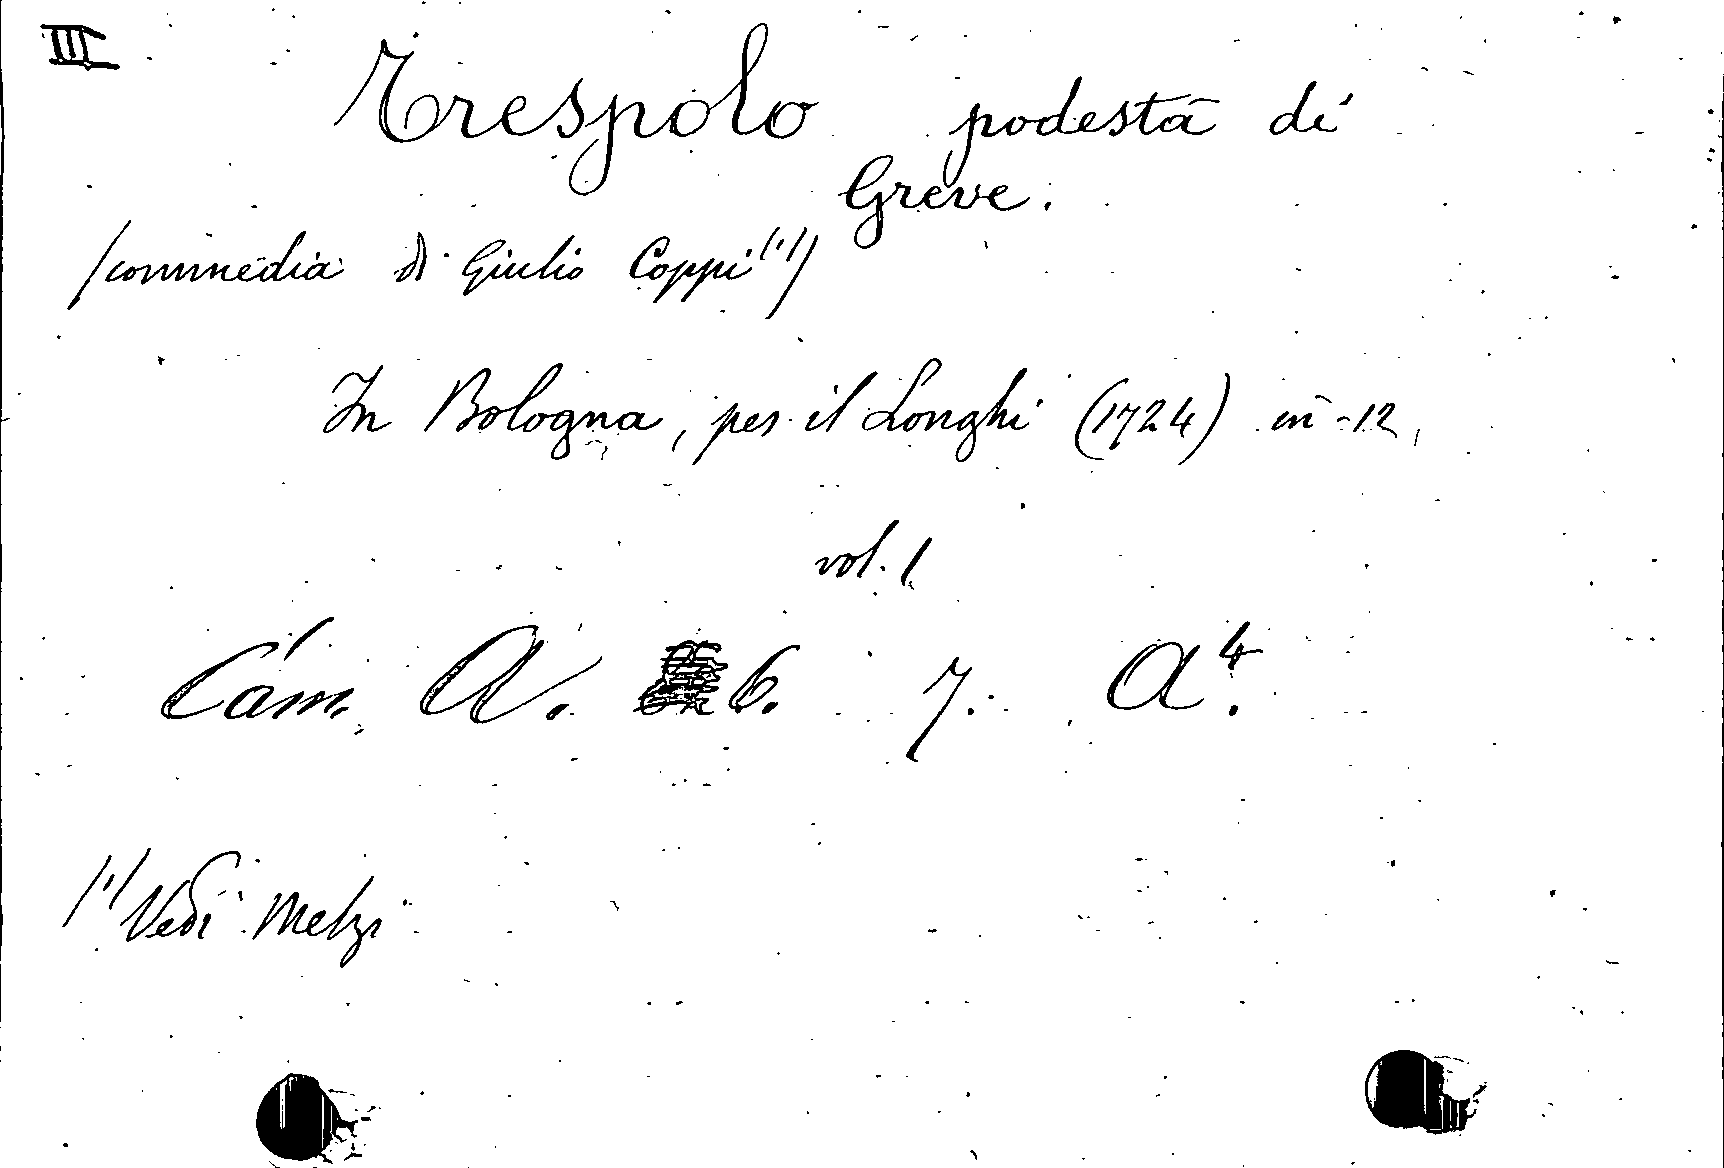 III
Trespolo podestà di
Greve.
(commedia di Giulio Coppi (1))
In Bologna, per il Longhi (1724) in-12,
vol. 1
Cam. A. 6. 7. A⁴.
(1) Vedi Melzi